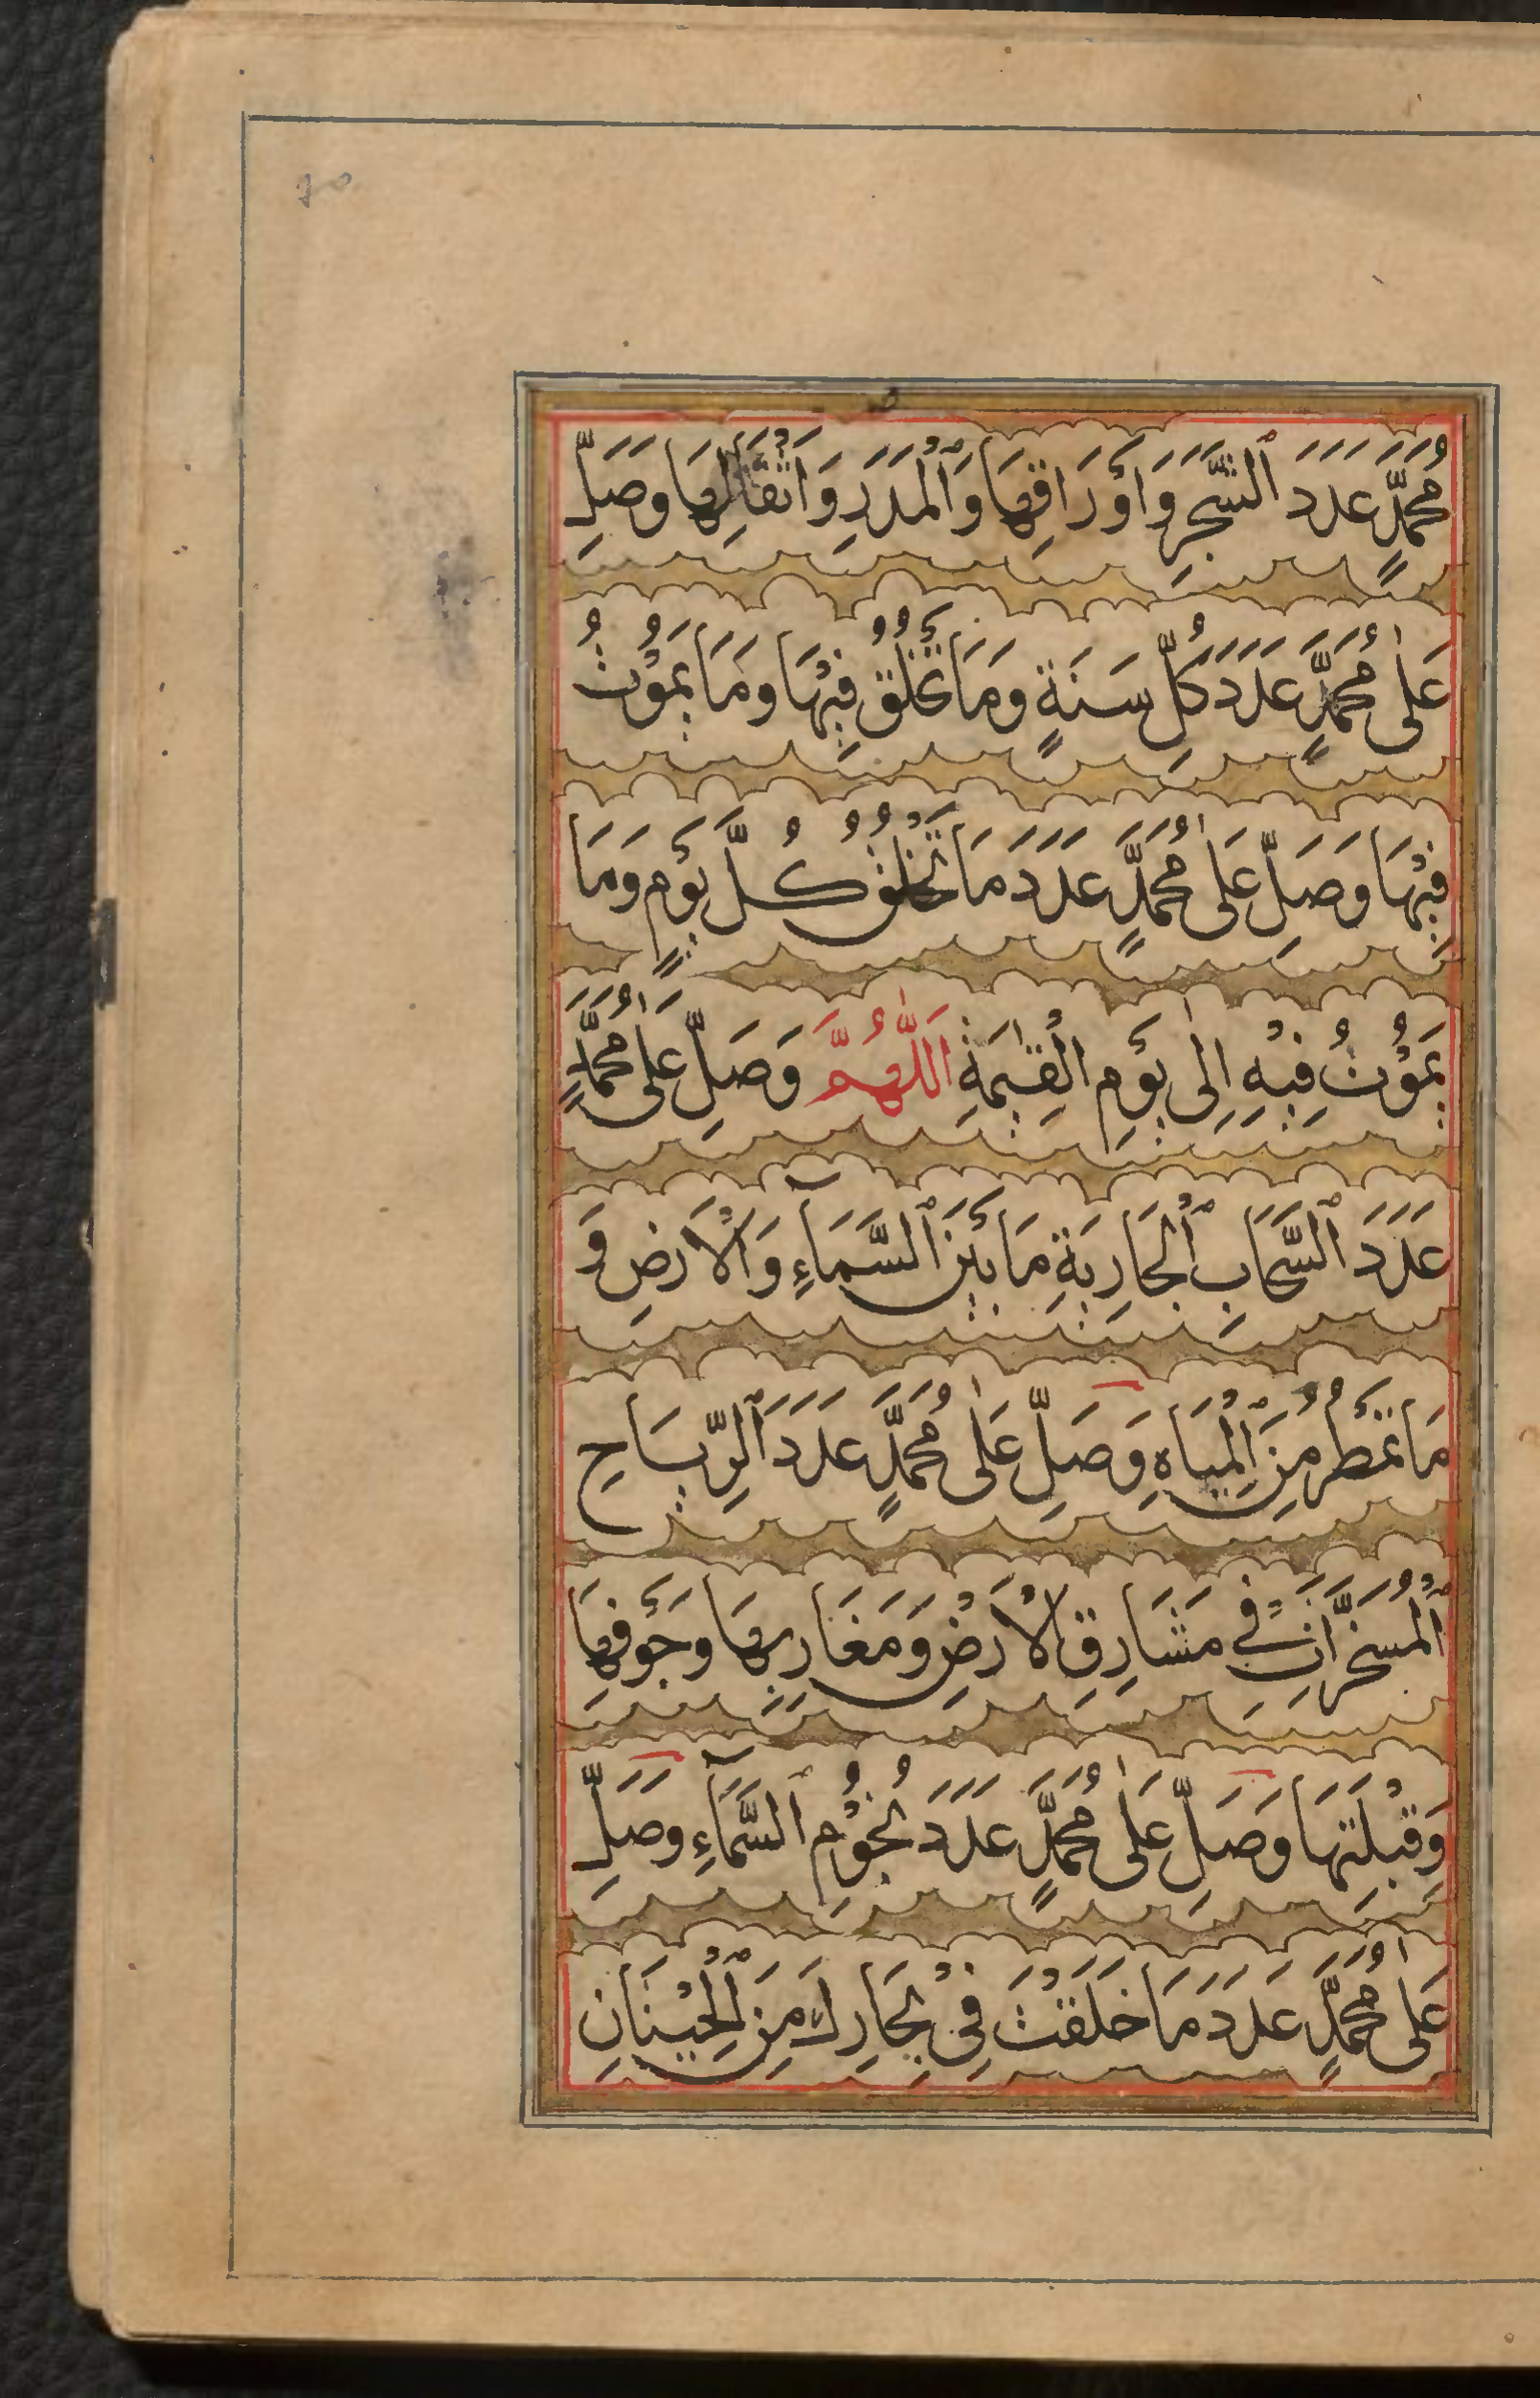 مُحَمَّدٍ عَدَدَ ٱلشَّجَرِ وَاَوْرَاقِهَا وَٱلْمَدَرِ وَاَثْقَالِهَا وَصَلِّ
عَلىٰ مُحَمَّدٍ عَدَدَ كُلِّ سَنَةٍ وَمَا تَخْلُقُ فِيْهَا وَمَا يَمُوْتُ
فِيْهَا وَصَلِّ عَلىٰ مُحَمَّدٍ عَدَدَ مَا تَخْلُقُ كُلَّ يَوْمٍ وَمَا
يَمُوْتُ فِيْهِ اِلىٰ يَوْمِ الْقِيٰمَةِ اَللّٰهُمَّ وَصَلِّ عَلىٰ مُحَمَّدٍ
عَدَدَ ٱلسَّحَابِ ٱلْجَارِيَةِ مَا بَيْنَ ٱلسَّمَآءِ وَالْاَرْضِ وَ
مَا تَمْطُرُ مِنَ ٱلْمِيَاهِ وَصَلِّ عَلىٰ مُحَمَّدٍ عَدَدَ ٱلرِّيَاحِ
ٱلْمُسَخَّرَاتِ فِي مَشَارِقِ الْاَرْضِ وَمَغَارِبِهَا وَجَوْفِهَا
وَقِبْلَتِهَا وَصَلِّ عَلىٰ مُحَمَّدٍ عَدَدَ نُجُوْمِ ٱلسَّمَآءِ وَصَلِّ
عَلىٰ مُحَمَّدٍ عَدَدَ مَا خَلَقْتَ فِيْ بِحَارِكَ مِنَ ٱلْحِيْتَانِ